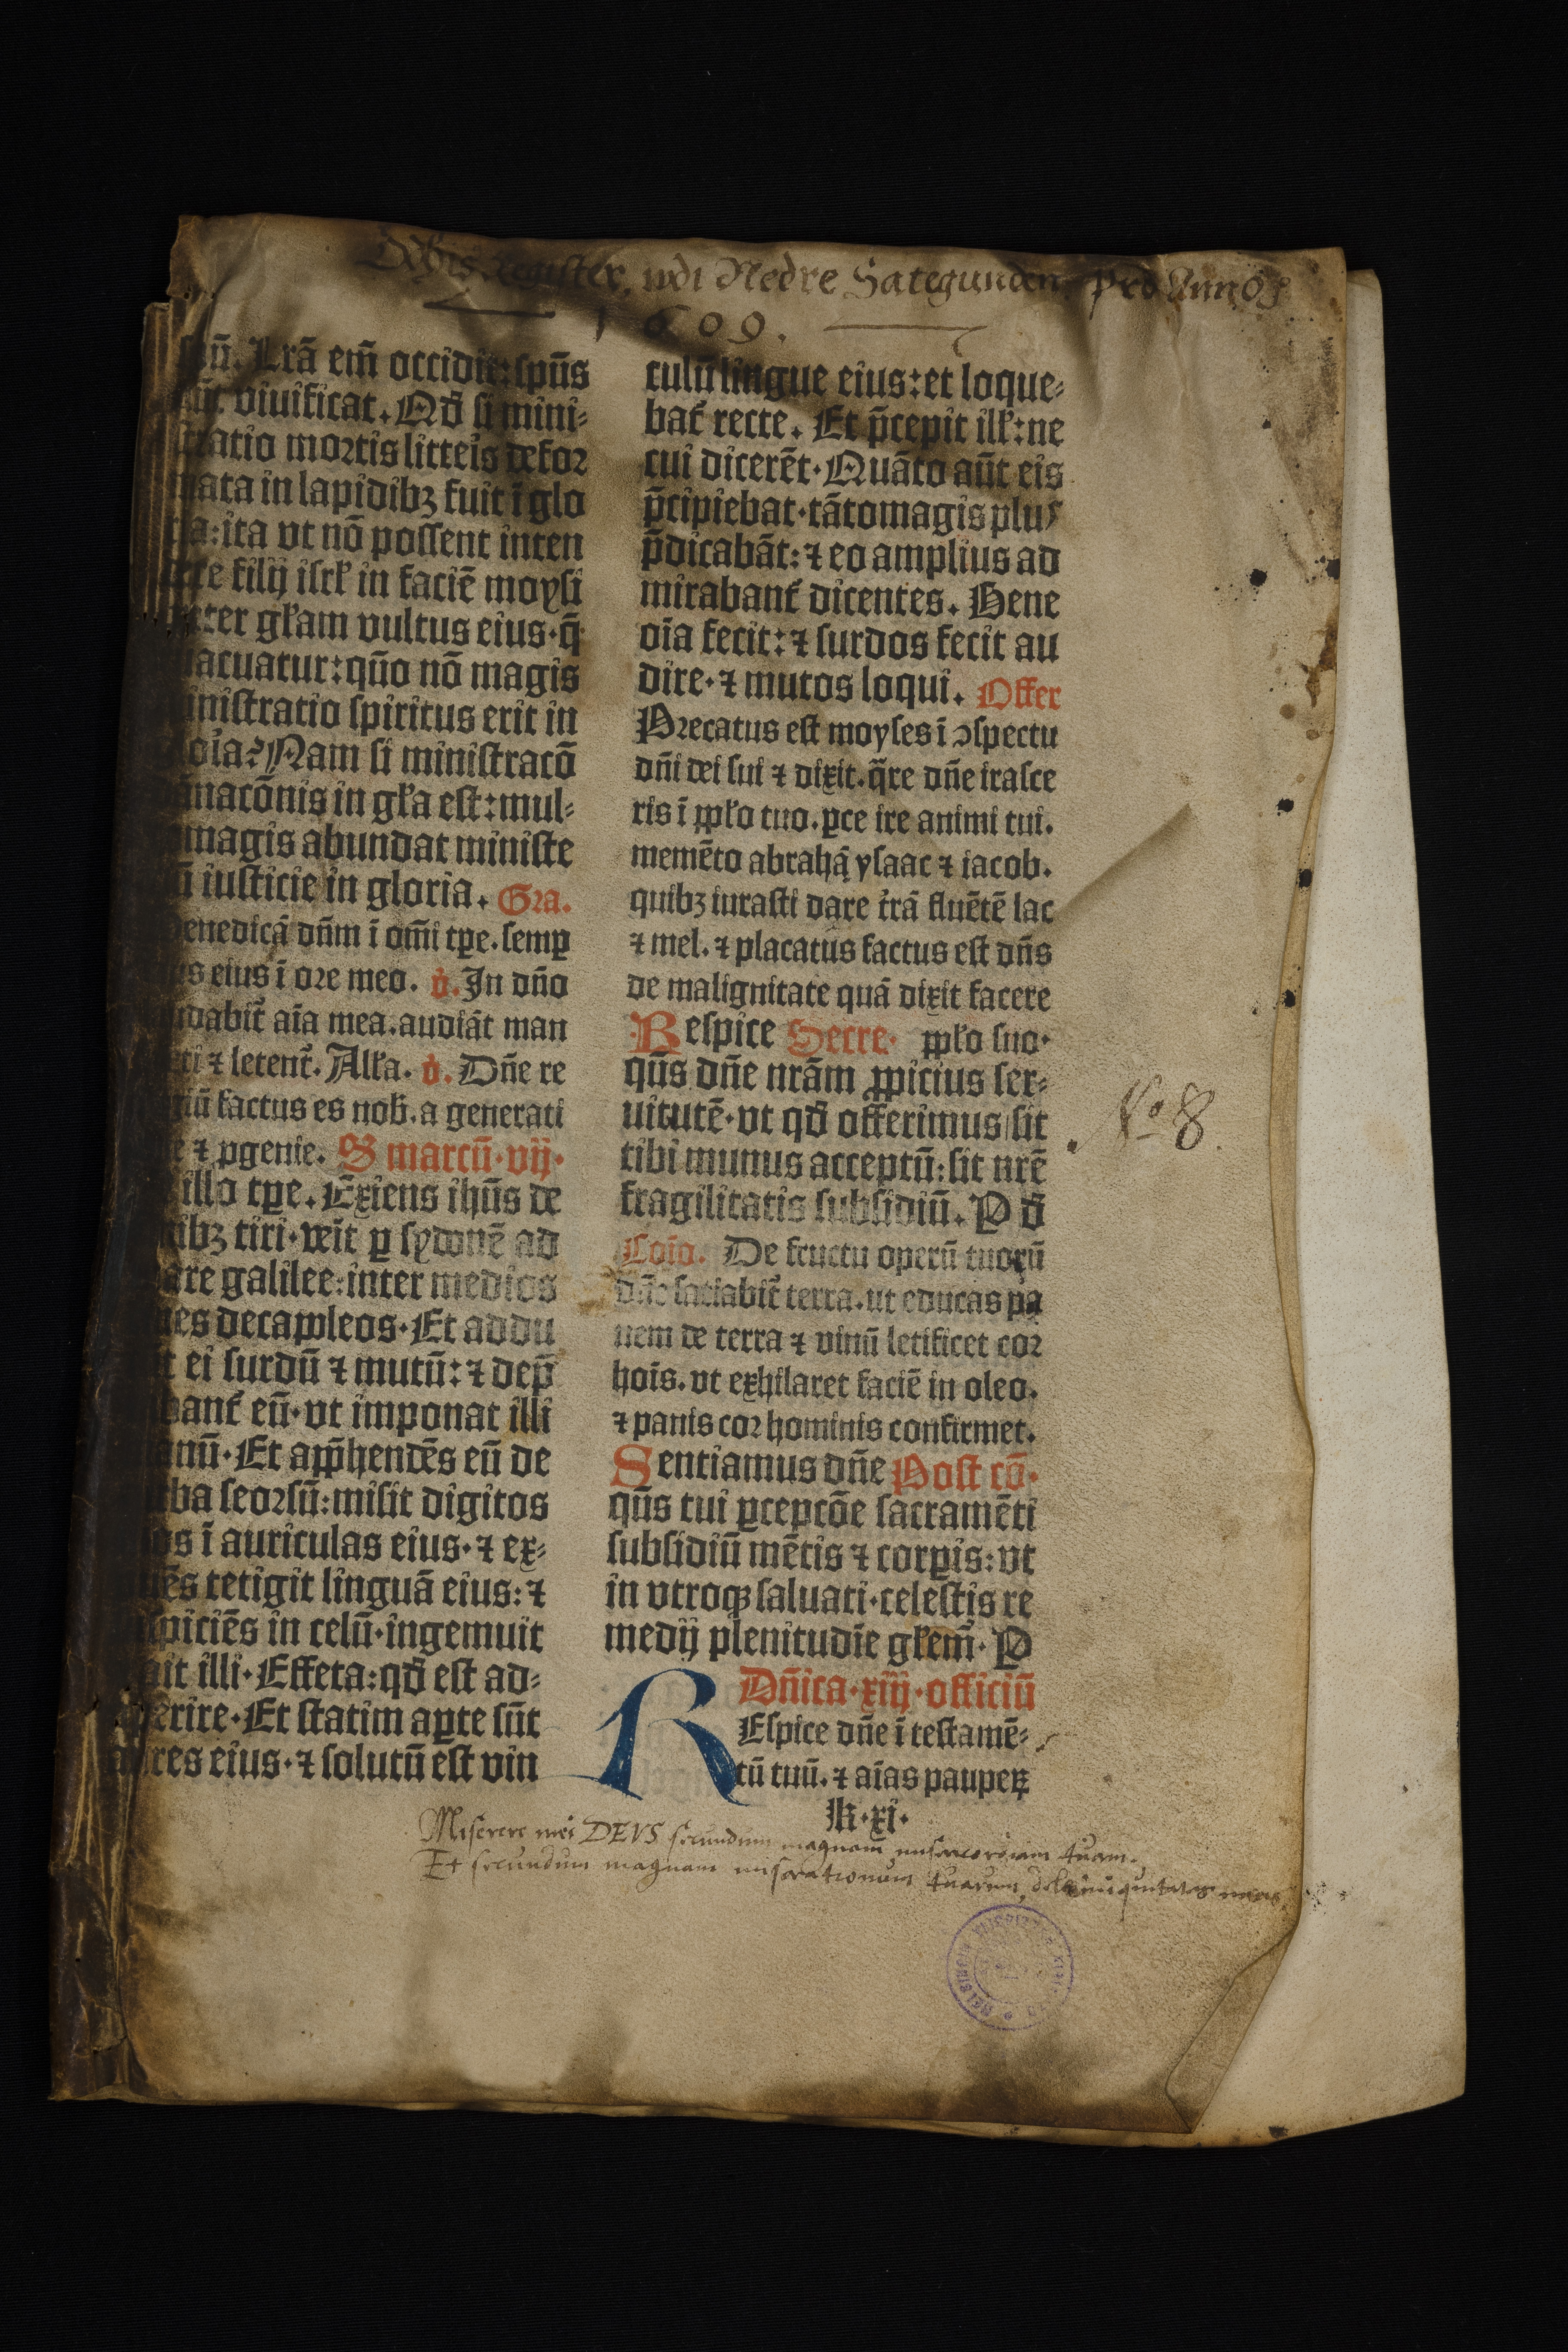 Register, udi Nedre Sategunden. Pro Anno
1609.
Lrã em̃ occidit: spũs
viuificat. Qd̃ si mini-
ratio mortis litteis defor
mata in lapidibꝫ fuit ĩ glo
ria: ita vt nõ possent inten
filij isrł in faciẽ moysi
ter głam vultus eius· q̃
acuatur: quõ nõ magis
inistratio spiritus erit in
Nam si ministracõ
nacõnis in gła est: mul-
magis abundat ministe
iusticie in gloria. Gra.
enedicã dñm ĩ om̃i tꝑe. semꝑ
s eius ĩ ore meo. ṽ. In dño
dabit̃ aĩa mea. audiãt man
ti ⁊ letent̃. Alła. ṽ. Dñe re
iũ factus es nob̃. a generati
e ⁊ ꝓgenie. S marcũ· vij·
illo tꝑe. Exiens ihũs de
ibꝫ tiri· veĩt ꝑ sydonẽ ad
are galilee: inter medios
nes decapoleos· Et addu
t ei surdũ ⁊ mutũ: ⁊ dep̃
bant̃ eũ· vt imponat illi
anũ· Et app̃hendẽs eũ de
ba seorsũ: misit digitos
os ĩ auriculas eius· ⁊ ex-
ẽs tetigit linguã eius: ⁊
spiciẽs in celũ· ingemuit
ait illi· Effeta: qd̃ est ad-
perire· Et statim aꝑte sũt
res eius· ⁊ solutũ est vin
culũ lingue eius: et loque-
bat̃ recte. Et p̃cepit ill̃: ne
cui dicerẽt· Quãto aũt eis
p̃cipiebat· tãtomagis plus
p̃dicabãt: ⁊ eo amplius ad
mirabant̃ dicentes. Bene
oĩa fecit: ⁊ surdos fecit au
dire· ⁊ mutos loqui. Offer
Precatus est moyses ĩ ↄspectu
dñi dei sui ⁊ dixit. q̃re dñe irasce
ris ĩ ppło tuo. ꝑce ire animi tui.
memẽto abrahã ysaac ⁊ iacob.
quibꝫ iurasti dare trã fluẽtẽ lac
⁊ mel. ⁊ placatus factus est dñs
de malignitate quã dixit facere
Respice Secre· ppło suo·
qũs dñe nrãm ꝓpicius ser-
uitutẽ· vt qd̃ offerimus sit
tibi munus acceptũ: sit nrẽ
fragilitatis subsidiũ. P d̃
Coĩo. De fructu operũ tuoꝝ
dñe saciabit̃ terra. ut educas pa
nem de terra ⁊ vinũ letificet cor
hoĩs. vt exhilaret faciẽ in oleo.
⁊ panis cor hominis confirmet.
Sentiamus dñe Post cõ·
qũs tui ꝑcepcõe sacramẽti
subsidiũ mẽtis ⁊ corꝑis: vt
in vtroqꝫ saluati· celestis re
medij plenitudĩe głem̃· P
Dñica· xiij· officiũ
REspice dñe ĩ testamẽ-
tũ tuũ. ⁊ aĩas pauperꝝ
k·xi·
No 8.
Miserere mei DEVS secundum magnam misericordiam tuam.
Et secundum magnam miserationum tuarum, dele iniquitates meas